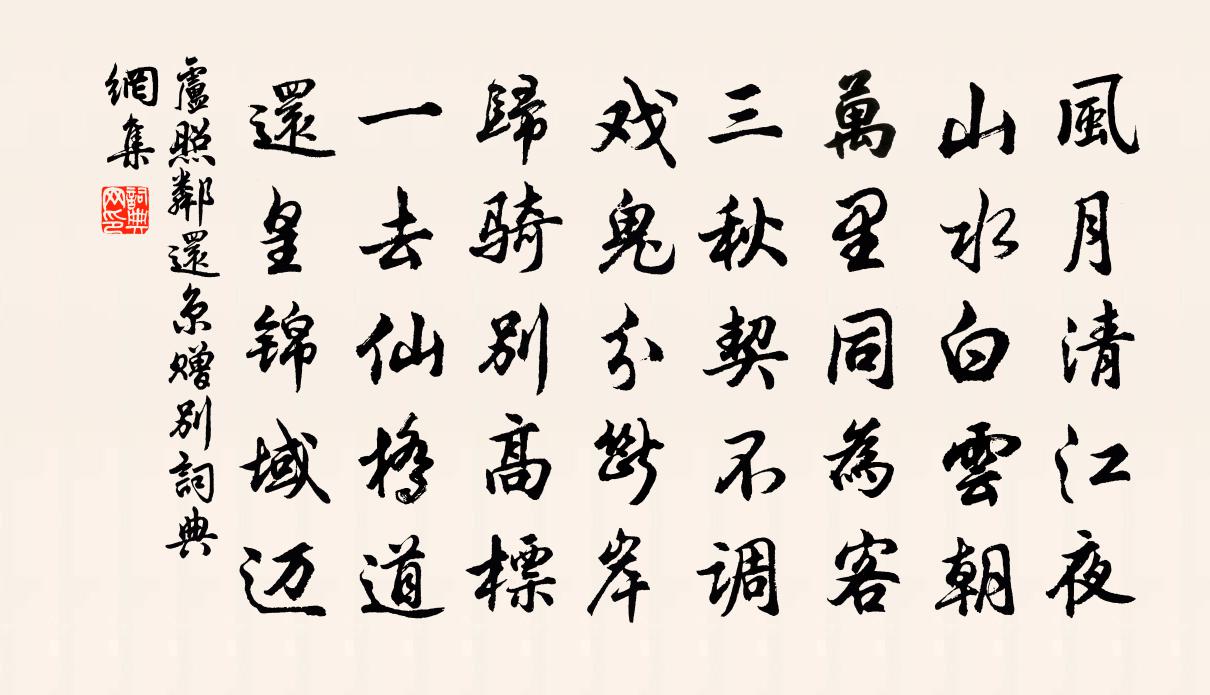 風月清江夜
山水白雲朝
萬里同為客
三秋契不调
戏鬼分斷岸
歸骑别高標
一去仙橋道
還皇锦域迈
盧照鄰還京赠别詞典
網集
詞典
网印